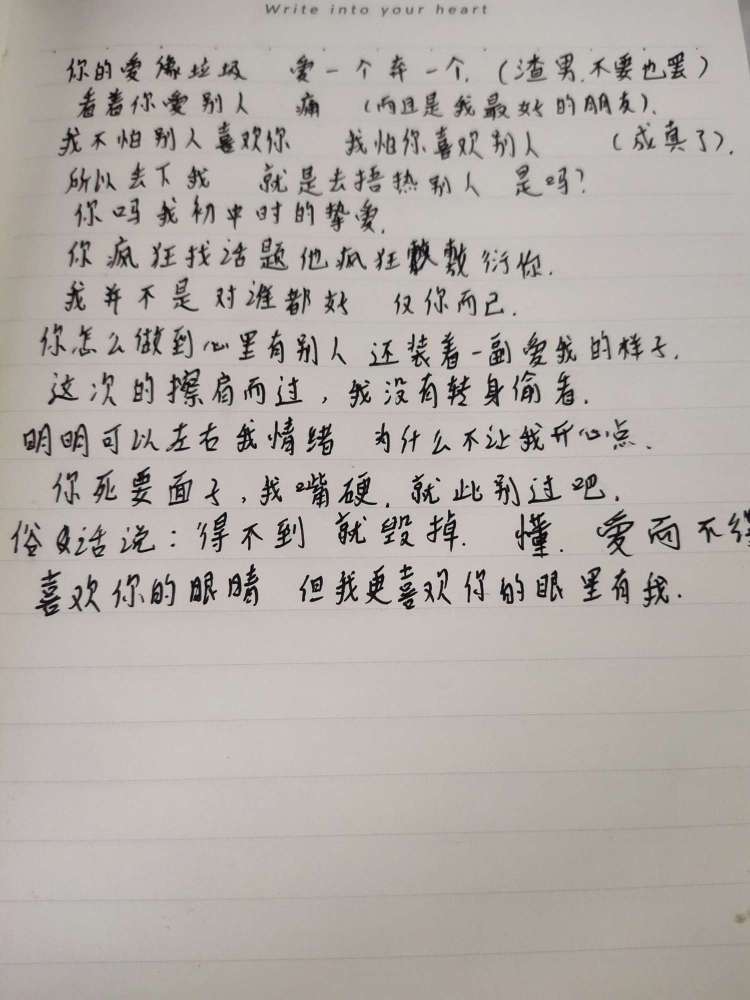 Write into your heart
你的爱像垃圾 爱一个弃一个.(渣男.不要也罢)
看着你爱别人 痛 (而且是我最好的朋友).
我不怕别人喜欢你 我怕你喜欢别人 (成真了).
所以丢下我 就是去捂热别人 是吗?
你吗我初中时的挚爱.
你疯狂找话题他疯狂敷衍你.
我并不是对谁都好 仅你而已.
你怎么做到心里有别人 还装着一副爱我的样子.
这次的擦肩而过,我没有转身偷看.
明明可以左右我情绪 为什么不让我开心点.
你死要面子,我嘴硬.就此别过吧.
俗话说:得不到 就毁掉. 懂. 爱而不得
喜欢你的眼睛 但我更喜欢你的眼里有我.